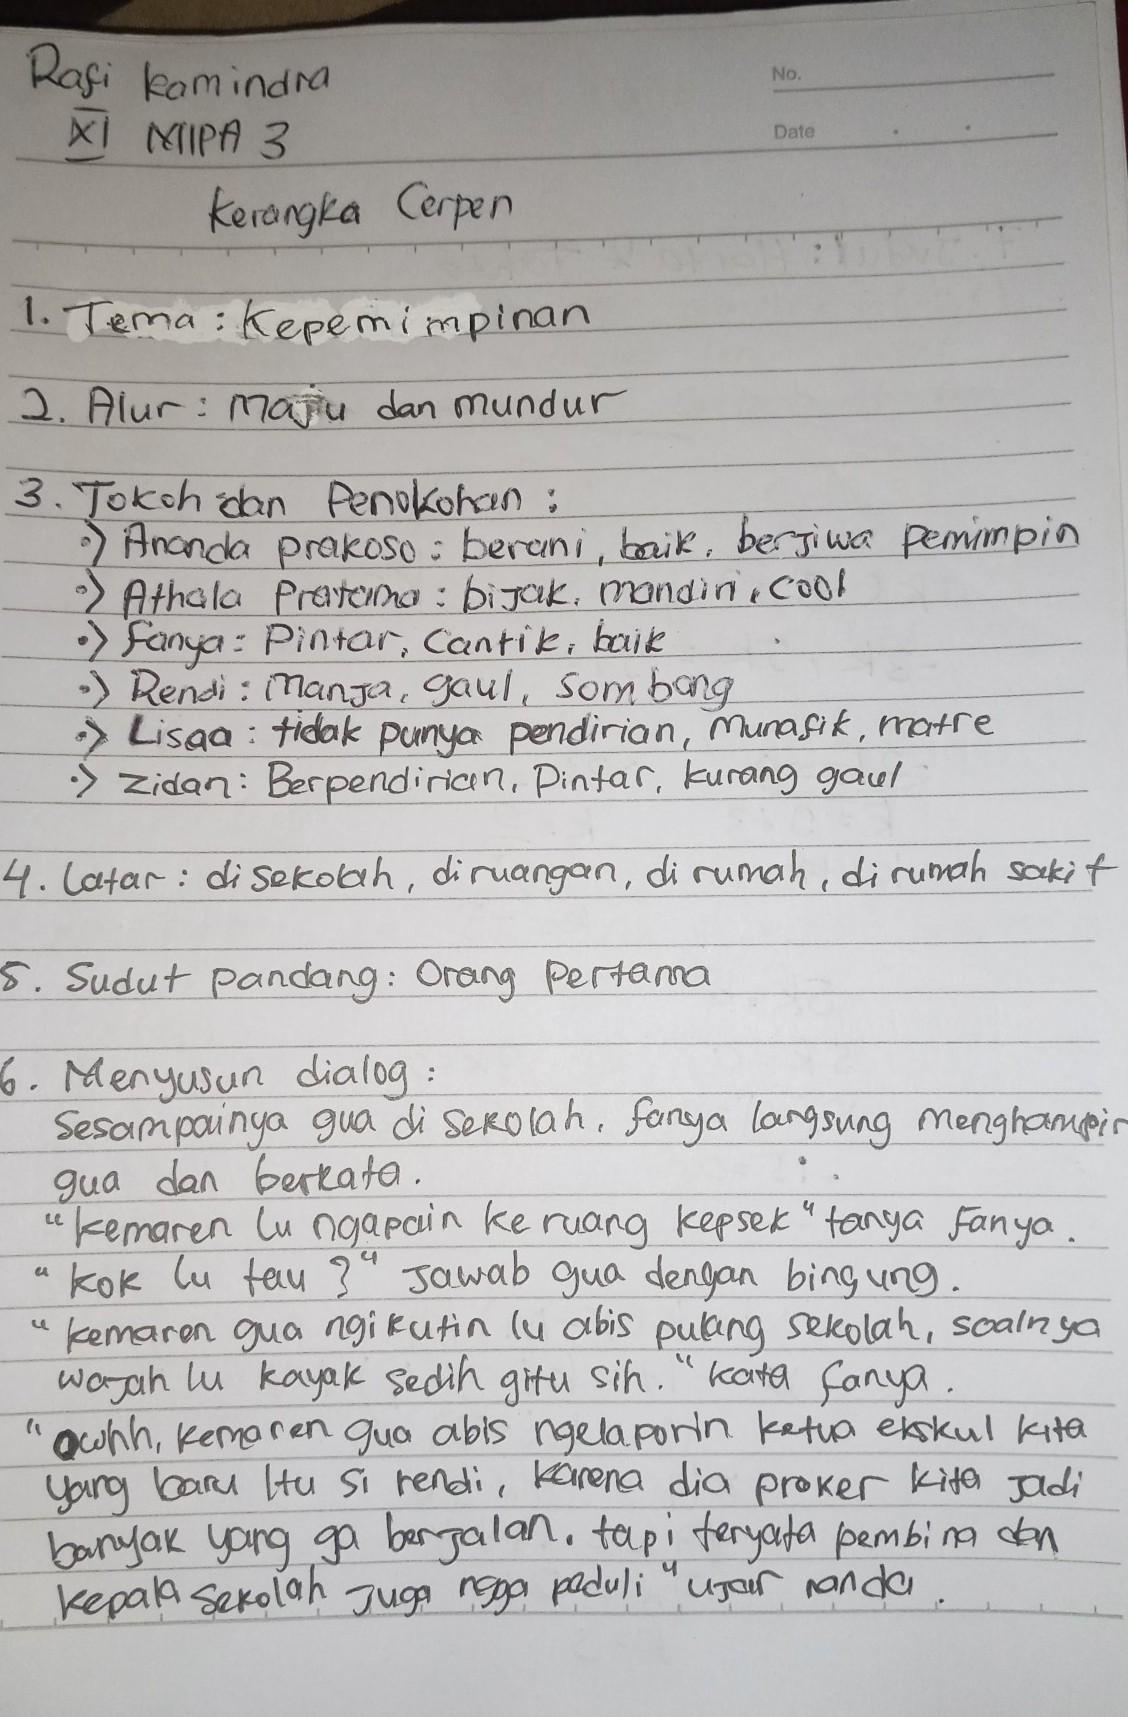 Rafi kamindra
No.
XI MIPA 3
Date
Kerangka Cerpen
1. Tema : Kepemimpinan
2. Alur : Maju dan mundur
3. Tokoh dan Penokohan :
•> Ananda prakoso : berani, baik, berjiwa pemimpin
•> Athala Pratama : bijak, mandiri, cool
•> Fanya : Pintar, Cantik, baik
•> Rendi : Manja, gaul, sombong
•> Lisaa : tidak punya pendirian, Munafik, matre
•> Zidan : Berpendirian, Pintar, kurang gaul
4. Latar : di sekolah, diruangan, di rumah, di rumah sakit
5. Sudut pandang : Orang Pertama
6. Menyusun dialog :
Sesampainya gua di sekolah, fanya langsung menghampir
gua dan berkata.
"kemaren lu ngapain ke ruang kepsek" tanya Fanya.
"kok lu tau ?" jawab gua dengan bingung.
"kemaren gua ngikutin lu abis pulang sekolah, soalnya
wajah lu kayak sedih gitu sih." kata fanya.
"owhh, kemaren gua abis ngelaporin ketua ekskul kita
yang baru itu si rendi, karena dia proker kita jadi
banyak yang ga berjalan. tapi teryata pembina dan
kepala sekolah juga ngga peduli" ujar nanda.